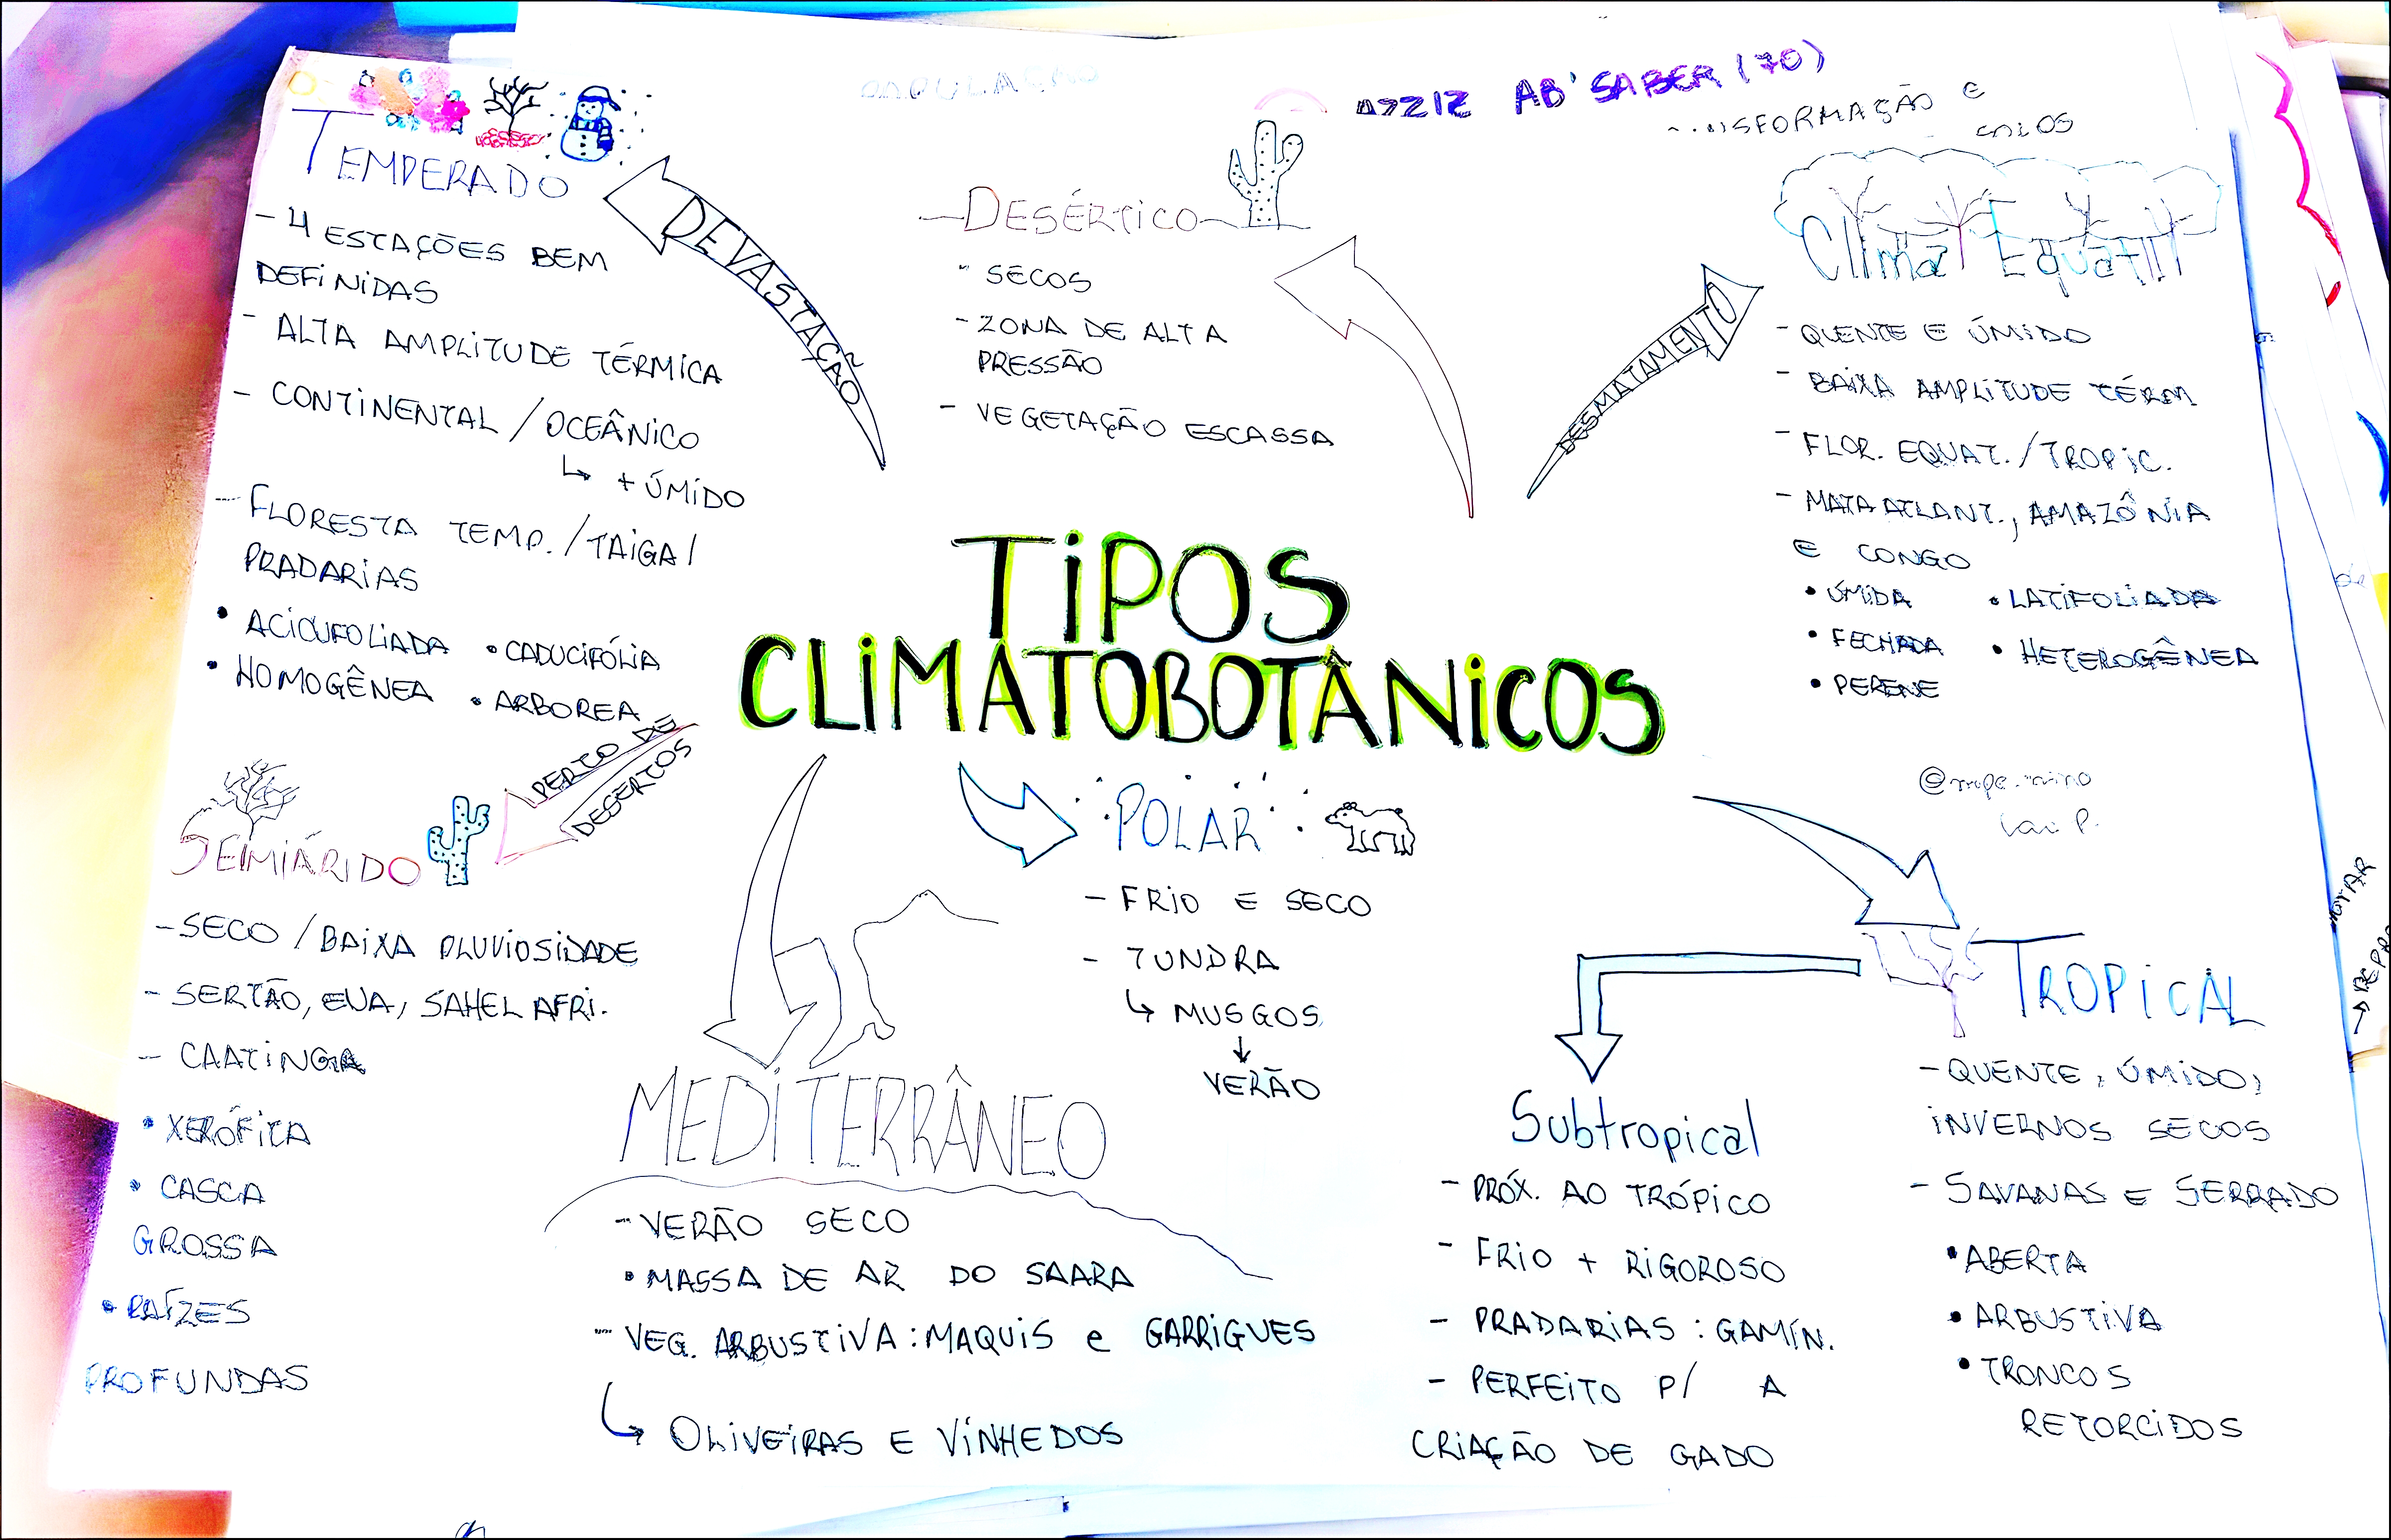 AZZIZ AB'SABER (70)
TIPOS
CLIMATOBOTÂNICOS
TEMPERADO
- 4 ESTAÇÕES BEM
DEFINIDAS
- ALTA AMPLITUDE TÉRMICA
- CONTINENTAL / OCEÂNICO
↳ + ÚMIDO
- FLORESTA TEMP. / TAIGA /
PRADARIAS
• ACICUFOLIADA • CADUCIFÓLIA
• HOMOGÊNEA • ARBOREA
DEVASTAÇÃO
DESÉRTICO
- SECOS
- ZONA DE ALTA
PRESSÃO
- VEGETAÇÃO ESCASSA
DESMATAMENTO
Clima Equat
- QUENTE E ÚMIDO
- BAIXA AMPLITUDE TÉRM
- FLOR. EQUAT. / TROPIC.
- MATA ATLANT., AMAZÔNIA
E CONGO
• ÚMIDA • LATIFOLIADA
• FECHADA • HETEROGÊNEA
• PERENE
PERTO DE
DESERTOS
SEMIÁRIDO
- SECO / BAIXA PLUVIOSIDADE
- SERTÃO, EUA, SAHEL AFRI.
- CAATINGA
• XERÓFITA
• CASCA
GROSSA
• RAÍZES
PROFUNDAS
MEDITERRÂNEO
- VERÃO SECO
• MASSA DE AR DO SAARA
- VEG. ARBUSTIVA: MAQUIS e GARRIGUES
↳ OLIVEIRAS E VINHEDOS
POLAR
- FRIO E SECO
- TUNDRA
↳ MUSGOS
↓
VERÃO
Subtropical
- PRÓX. AO TRÓPICO
- FRIO + RIGOROSO
- PRADARIAS : GAMÍN.
- PERFEITO P/ A
CRIAÇÃO DE GADO
TROPICAL
- QUENTE, ÚMIDO,
INVERNOS SECOS
- SAVANAS E SERRADO
• ABERTA
• ARBUSTIVA
• TRONCOS
RETORCIDOS